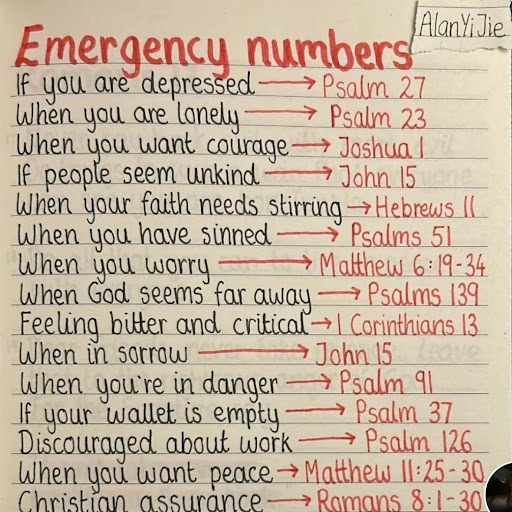 AlanYiJie
Emergency numbers
If you are depressed → Psalm 27
When you are lonely → Psalm 23
When you want courage → Joshua 1
If people seem unkind → John 15
When your faith needs stirring → Hebrews 11
When you have sinned → Psalms 51
When you worry → Matthew 6:19-34
When God seems far away → Psalms 139
Feeling bitter and critical → 1 Corinthians 13
When in sorrow → John 15
When you're in danger → Psalm 91
If your wallet is empty → Psalm 37
Discouraged about work → Psalm 126
When you want peace → Matthew 11:25-30
Christian assurance → Romans 8:1-30